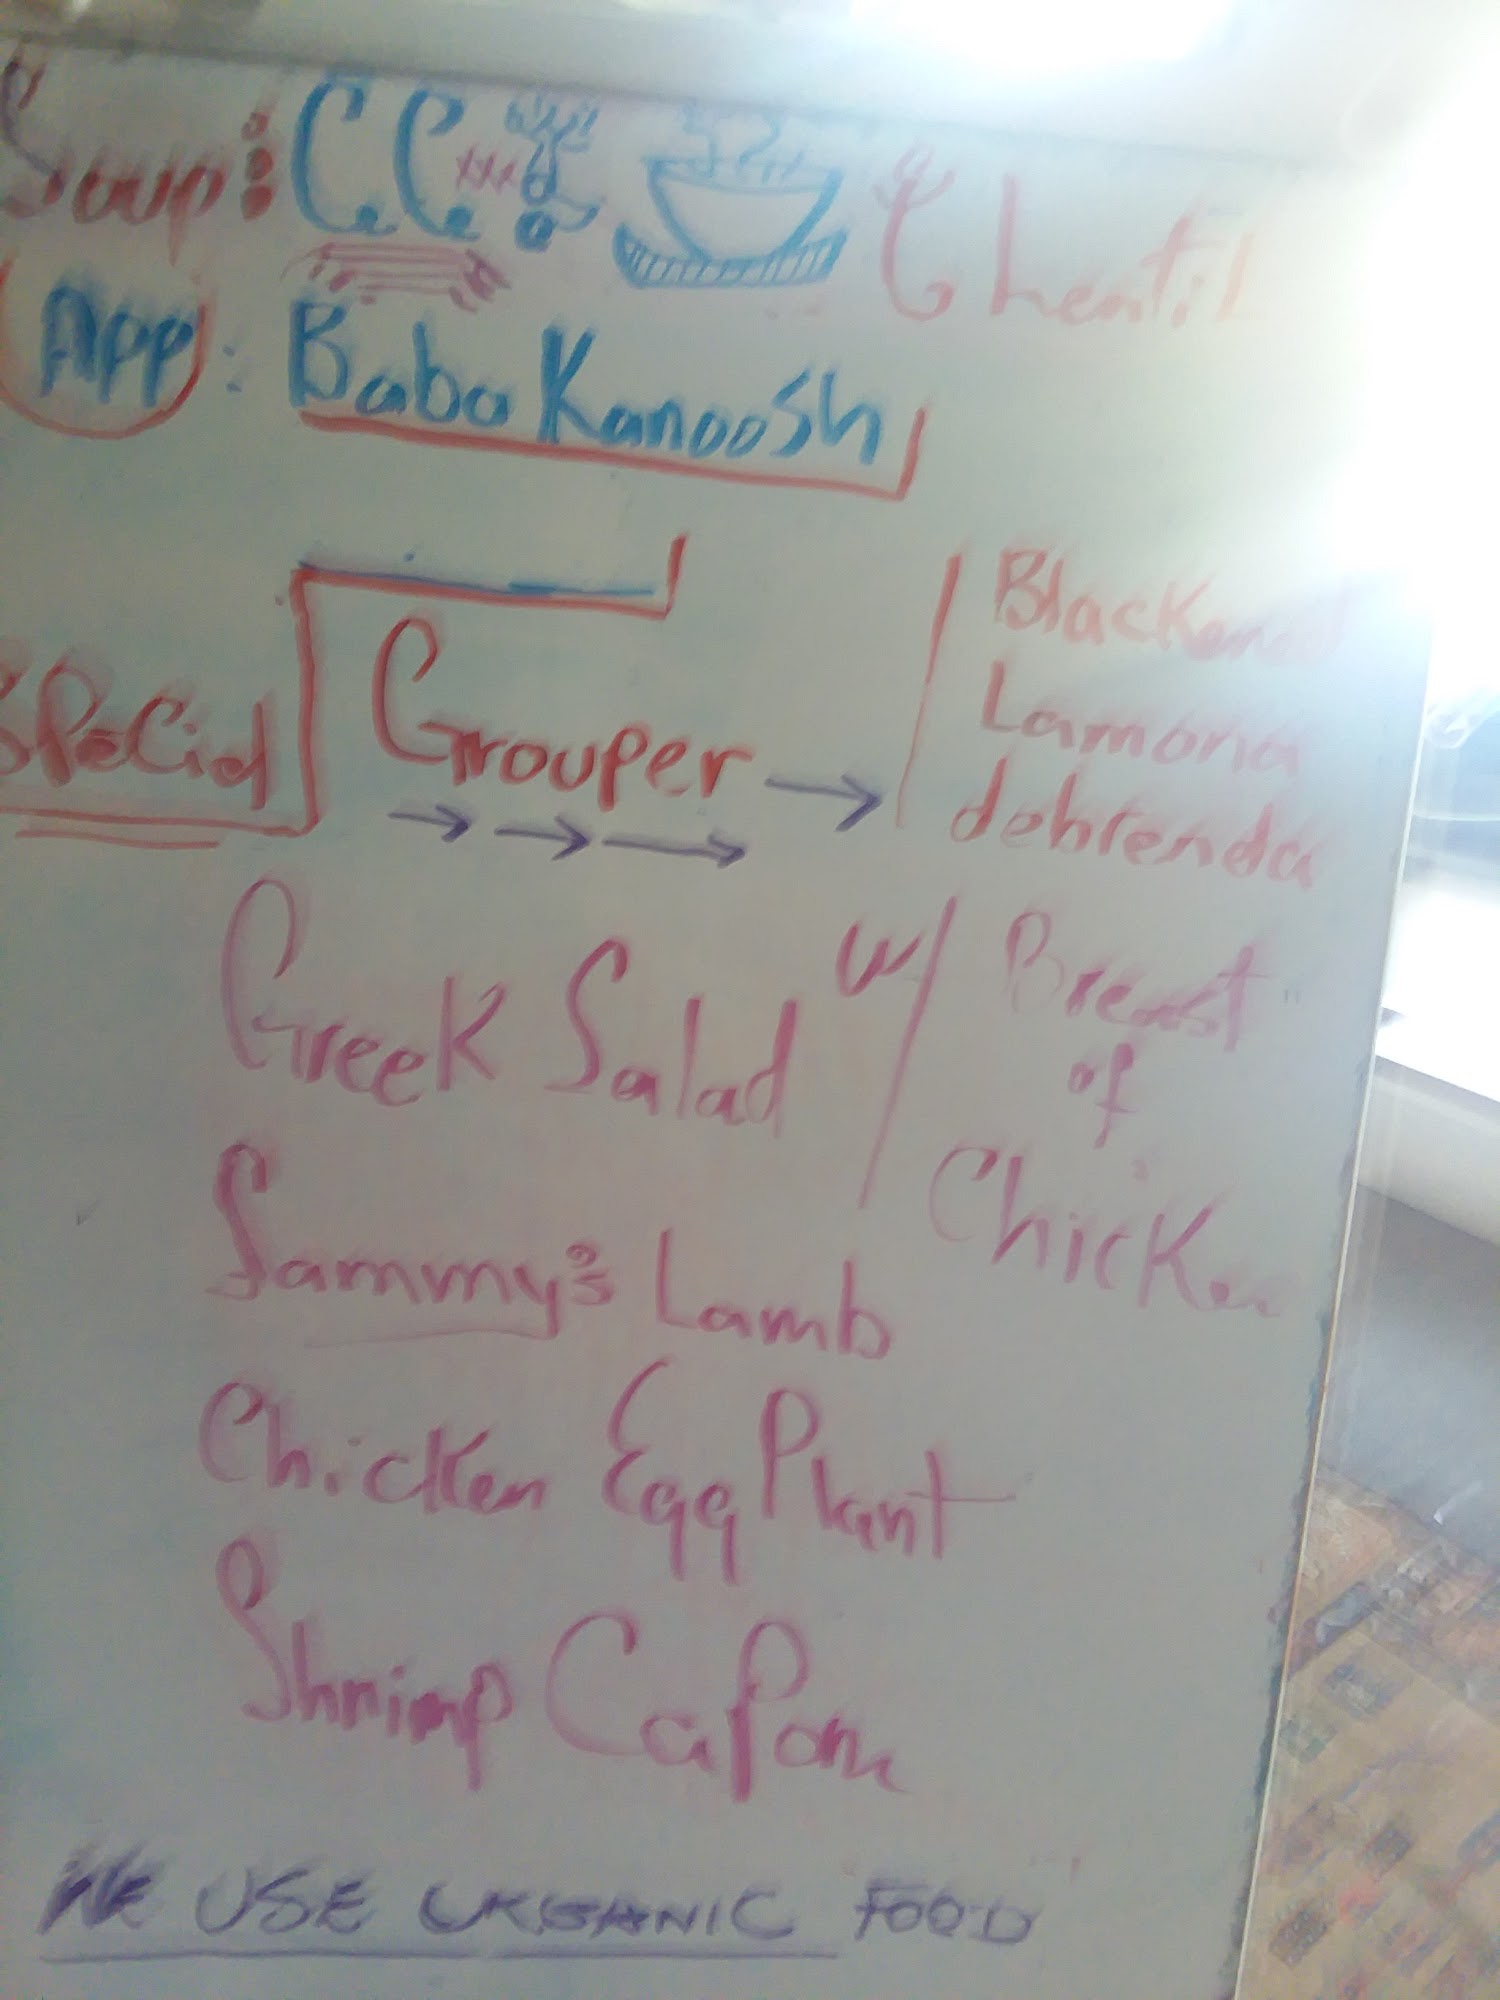 Soup: C.C. & Lentil
App: Baba Kanoosh
Special Grouper → Blackened
Lamona
debrenda
Greek Salad w/ Breast
of
Chicken
Sammy's Lamb
Chicken EggPlant
Shrimp CaPone
WE USE ORGANIC FOOD